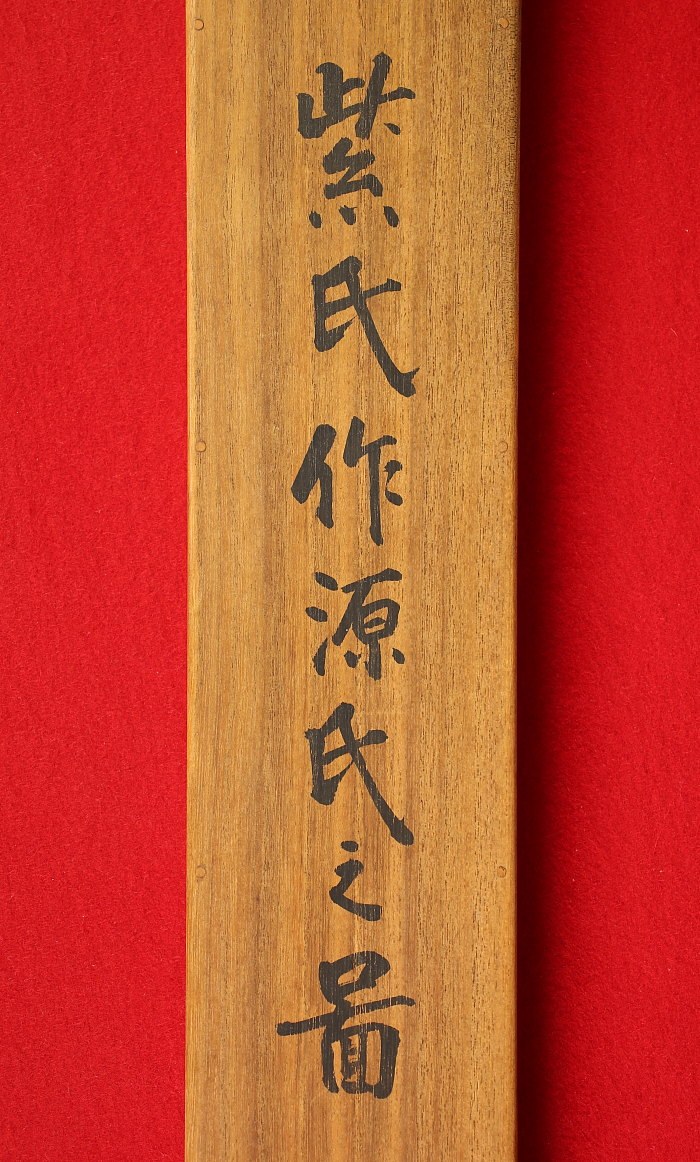 紫氏作源氏之啚